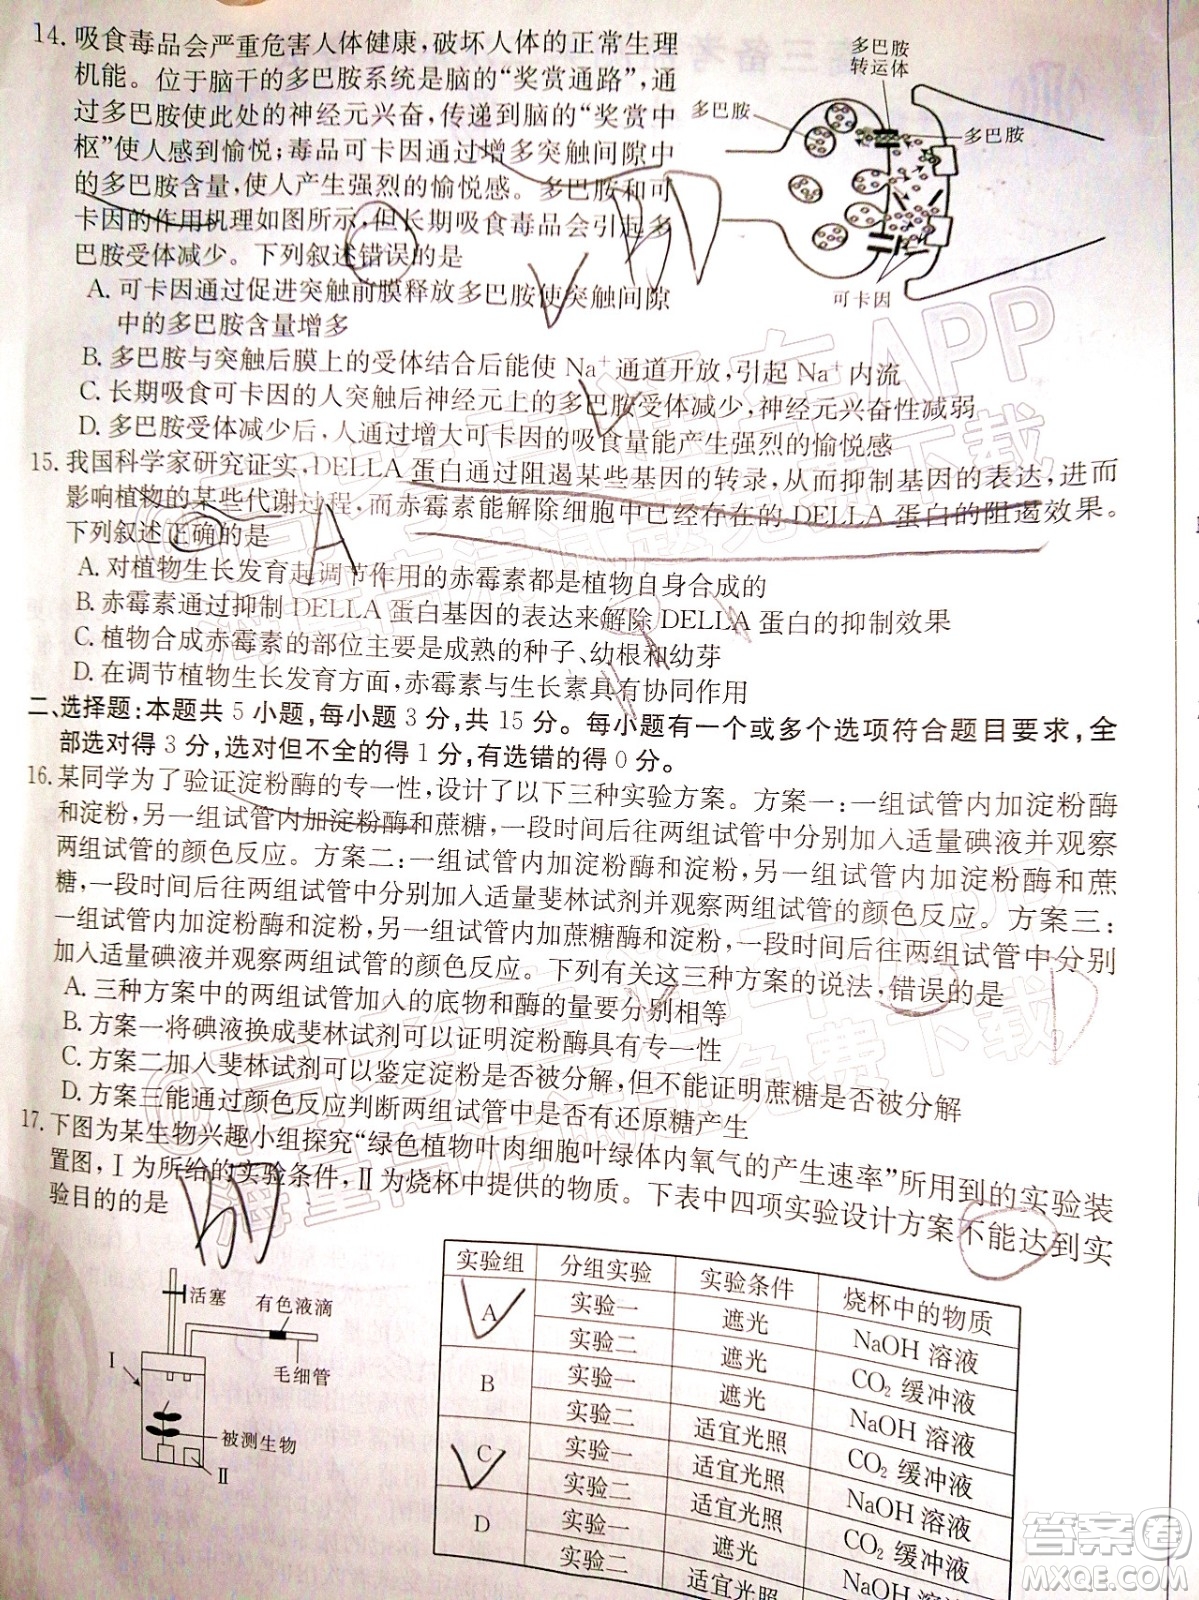 14. 吸食毒品会严重危害人体健康，破坏人体的正常生理
机能。位于脑干的多巴胺系统是脑的“奖赏通路”，通
过多巴胺使此处的神经元兴奋，传递到脑的“奖赏中
枢”使人感到愉悦；毒品可卡因能增多突触间隙中
的多巴胺含量，使人产生强烈的愉悦感。多巴胺和可
卡因的作用机理如图所示，但长期吸食毒品会引起多
巴胺受体减少。下列叙述错误的是
多巴胺
转运体
多巴胺
多巴胺
可卡因
A. 可卡因通过促进突触前膜释放多巴胺使突触间隙
中的多巴胺含量增多
B. 多巴胺与突触后膜上的受体结合后能使 Na⁺ 通道开放，引起 Na⁺ 内流
C. 长期吸食可卡因的人突触后神经元上的多巴胺受体减少，神经元兴奋性减弱
D. 多巴胺受体减少后，人通过增大可卡因的吸食量能产生强烈的愉悦感
15. 我国科学家研究证实，DELLA 蛋白通过阻遏某些基因的转录，从而抑制基因的表达，进而
影响植物的某些代谢过程，而赤霉素能解除细胞中已经存在的 DELLA 蛋白的阻遏效果。
下列叙述正确的是
A. 对植物生长发育起调节作用的赤霉素都是植物自身合成的
B. 赤霉素通过抑制 DELLA 蛋白基因的表达来解除 DELLA 蛋白的抑制效果
C. 植物合成赤霉素的部位主要是成熟的种子、幼根和幼芽
D. 在调节植物生长发育方面，赤霉素与生长素具有协同作用
二、选择题：本题共 5 小题，每小题 3 分，共 15 分。每小题有一个或多个选项符合题目要求，全
部选对得 3 分，选对但不全的得 1 分，有选错的得 0 分。
16. 某同学为了验证淀粉酶的专一性，设计了以下三种实验方案。方案一：一组试管内加淀粉酶
和淀粉，另一组试管内加淀粉酶和蔗糖，一段时间后往两组试管中分别加入适量碘液并观察
两组试管的颜色反应。方案二：一组试管内加淀粉酶和淀粉，另一组试管内加淀粉酶和蔗
糖，一段时间后往两组试管中分别加入适量斐林试剂并观察两组试管的颜色反应。方案三：
一组试管内加淀粉酶和淀粉，另一组试管内加蔗糖酶和淀粉，一段时间后往两组试管中分别
加入适量碘液并观察两组试管的颜色反应。下列有关这三种方案的说法，错误的是
A. 三种方案中的两组试管内加入的底物和酶的量要分别相等
B. 方案一将碘液换成斐林试剂可以证明淀粉酶具有专一性
C. 方案二加入斐林试剂可以鉴定淀粉是否被分解，但不能证明蔗糖是否被分解
D. 方案三能通过颜色反应判断两组试管中是否有还原糖产生
17. 下图为某生物兴趣小组探究“绿色植物叶肉细胞叶绿体内氧气的产生速率”所用到的实验装
置图，Ⅰ为所给的实验条件，Ⅱ为烧杯中提供的物质。下表中四项实验设计方案不能达到实
验目的的是
活塞
有色液滴
毛细管
Ⅰ
被测生物
Ⅱ
实验组 分组实验 实验条件 烧杯中的物质
A 实验一 遮光 NaOH 溶液
实验二 遮光 CO₂ 缓冲液
B 实验一 遮光 NaOH 溶液
实验二 适宜光照 CO₂ 缓冲液
C 实验一 适宜光照 NaOH 溶液
实验二 适宜光照 CO₂ 缓冲液
D 实验一 遮光 NaOH 溶液
实验二 适宜光照 CO₂ 缓冲液
高考早知道APP
海量高清试题免费下载
答案圈
MXQE.COM